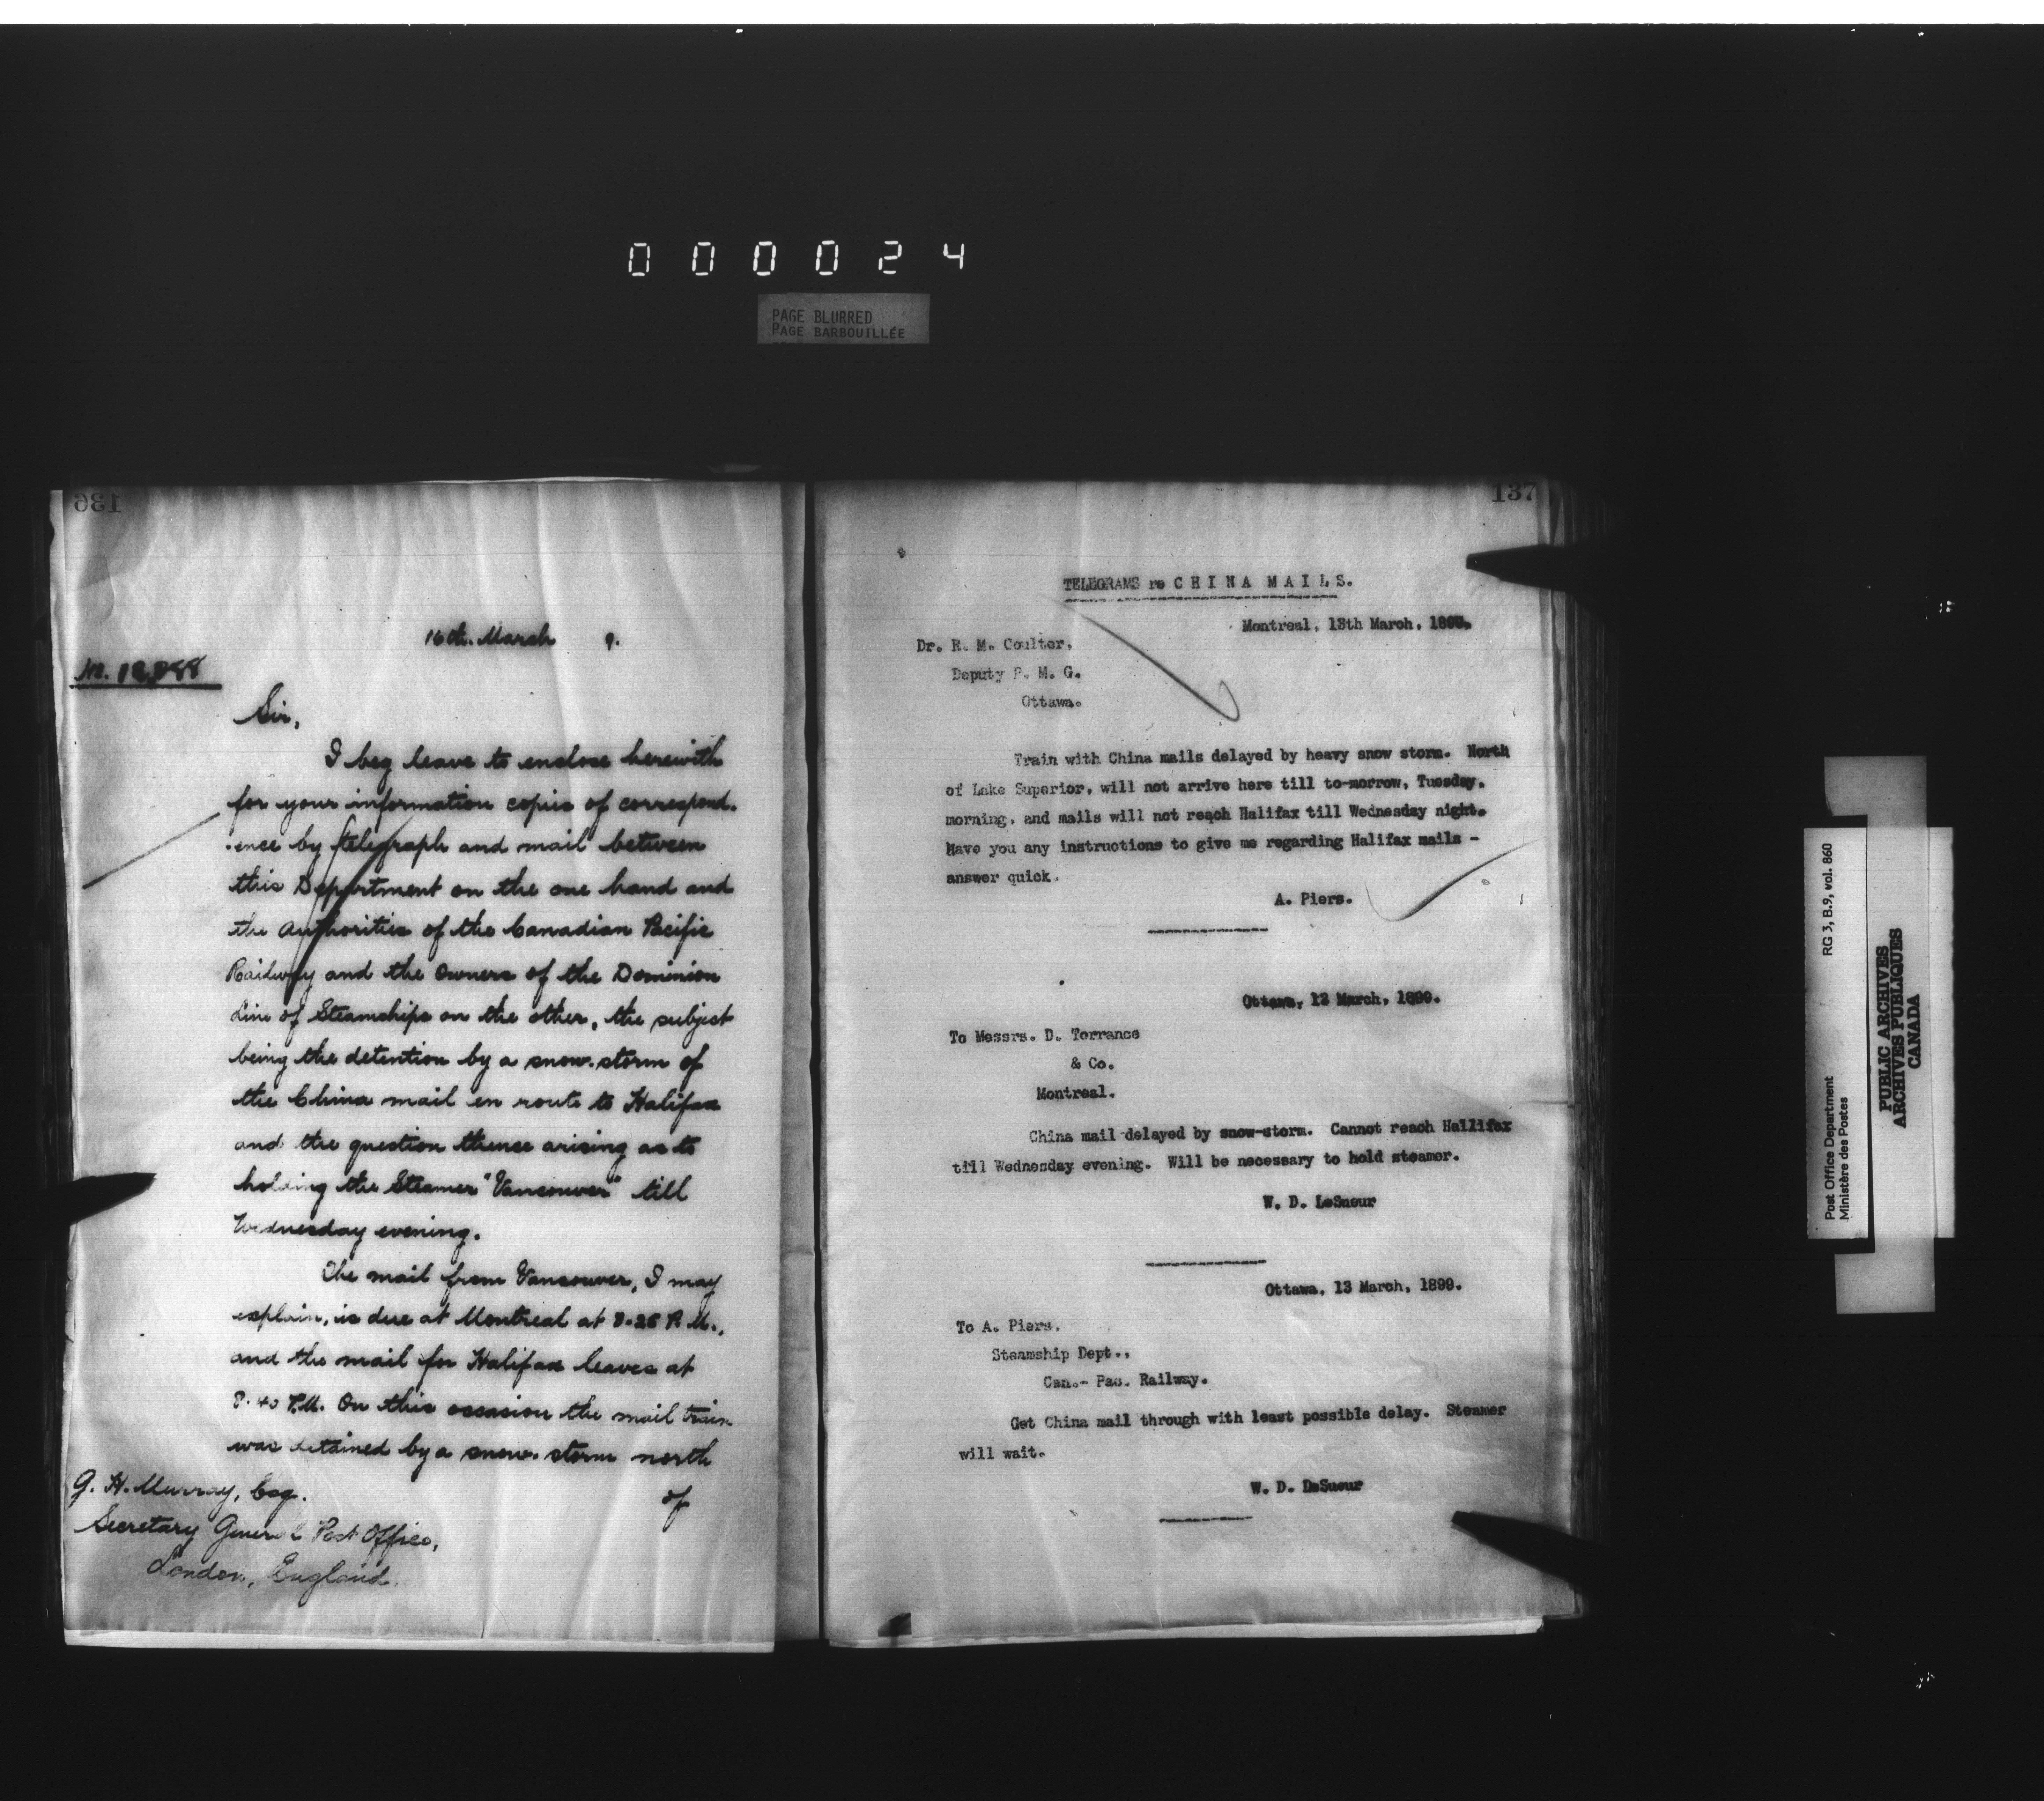 000024
PAGE BLURRED
PAGE BARBOUILLÉE
136
16th. March 9.
No.
Sir,
I beg leave to enclose herewith
for your information copies of correspond-
-ence by telegraph and mail between
this Department on the one hand and
the Authorities of the Canadian Pacific
Railway and the Owners of the Dominion
Line of Steamships on the other, the subject
being the detention by a snow-storm of
the China mail en route to Halifax
and the question thence arising as to
holding the Steamer "Vancouver" till
Wednesday evening.
The mail from Vancouver, I may
explain, is due at Montreal at P.M.,
and the mail for Halifax leaves at
P.M. On this occasion the mail train
was detained by a snow-storm north
of
G. H. Murray, Esq.
Secretary General Post Office,
London, England.
137
TELEGRAMS re C H I N A M A I L S.
Montreal, 13th March, 1899.
Dr. R. M. Coulter,
Deputy P. M. G.
Ottawa.
Train with China mails delayed by heavy snow storm. North
of Lake Superior, will not arrive here till to-morrow, Tuesday,
morning, and mails will not reach Halifax till Wednesday night.
Have you any instructions to give me regarding Halifax mails -
answer quick.
A. Piers.
Ottawa, 13 March, 1899.
To Messrs. D. Torrance
& Co.
Montreal.
China mail delayed by snow-storm. Cannot reach Hallifax
till Wednesday evening. Will be necessary to hold steamer.
W. D. LeSueur
Ottawa, 13 March, 1899.
To A. Piers,
Steamship Dept.,
Can.- Pac. Railway.
Get China mail through with least possible delay. Steamer
will wait.
W. D. LeSueur
Post Office Department RG 3, B.9, vol. 860
Ministère des Postes
PUBLIC ARCHIVES
ARCHIVES PUBLIQUES
CANADA